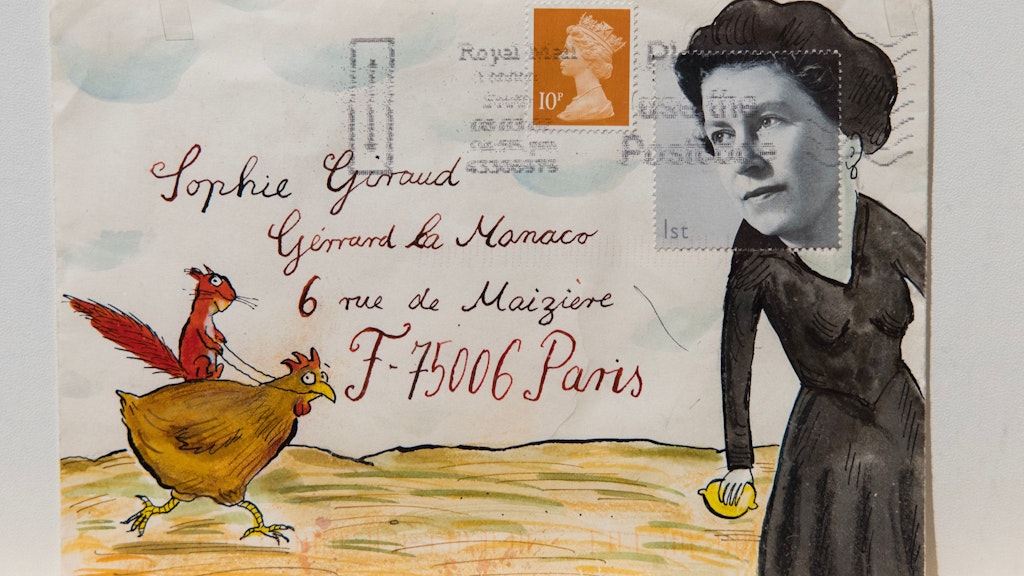 Royal Mail
10P
use the
Postcode
1st
Sophie Giraud
Gérrard La Monaco
6 rue de Maizière
F-75006 Paris